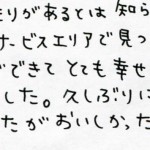 モリがあるとは 知ら
ナービスエリアで見つ
ぐできて とても幸せ
した。久しぶりに
たがおいしかった